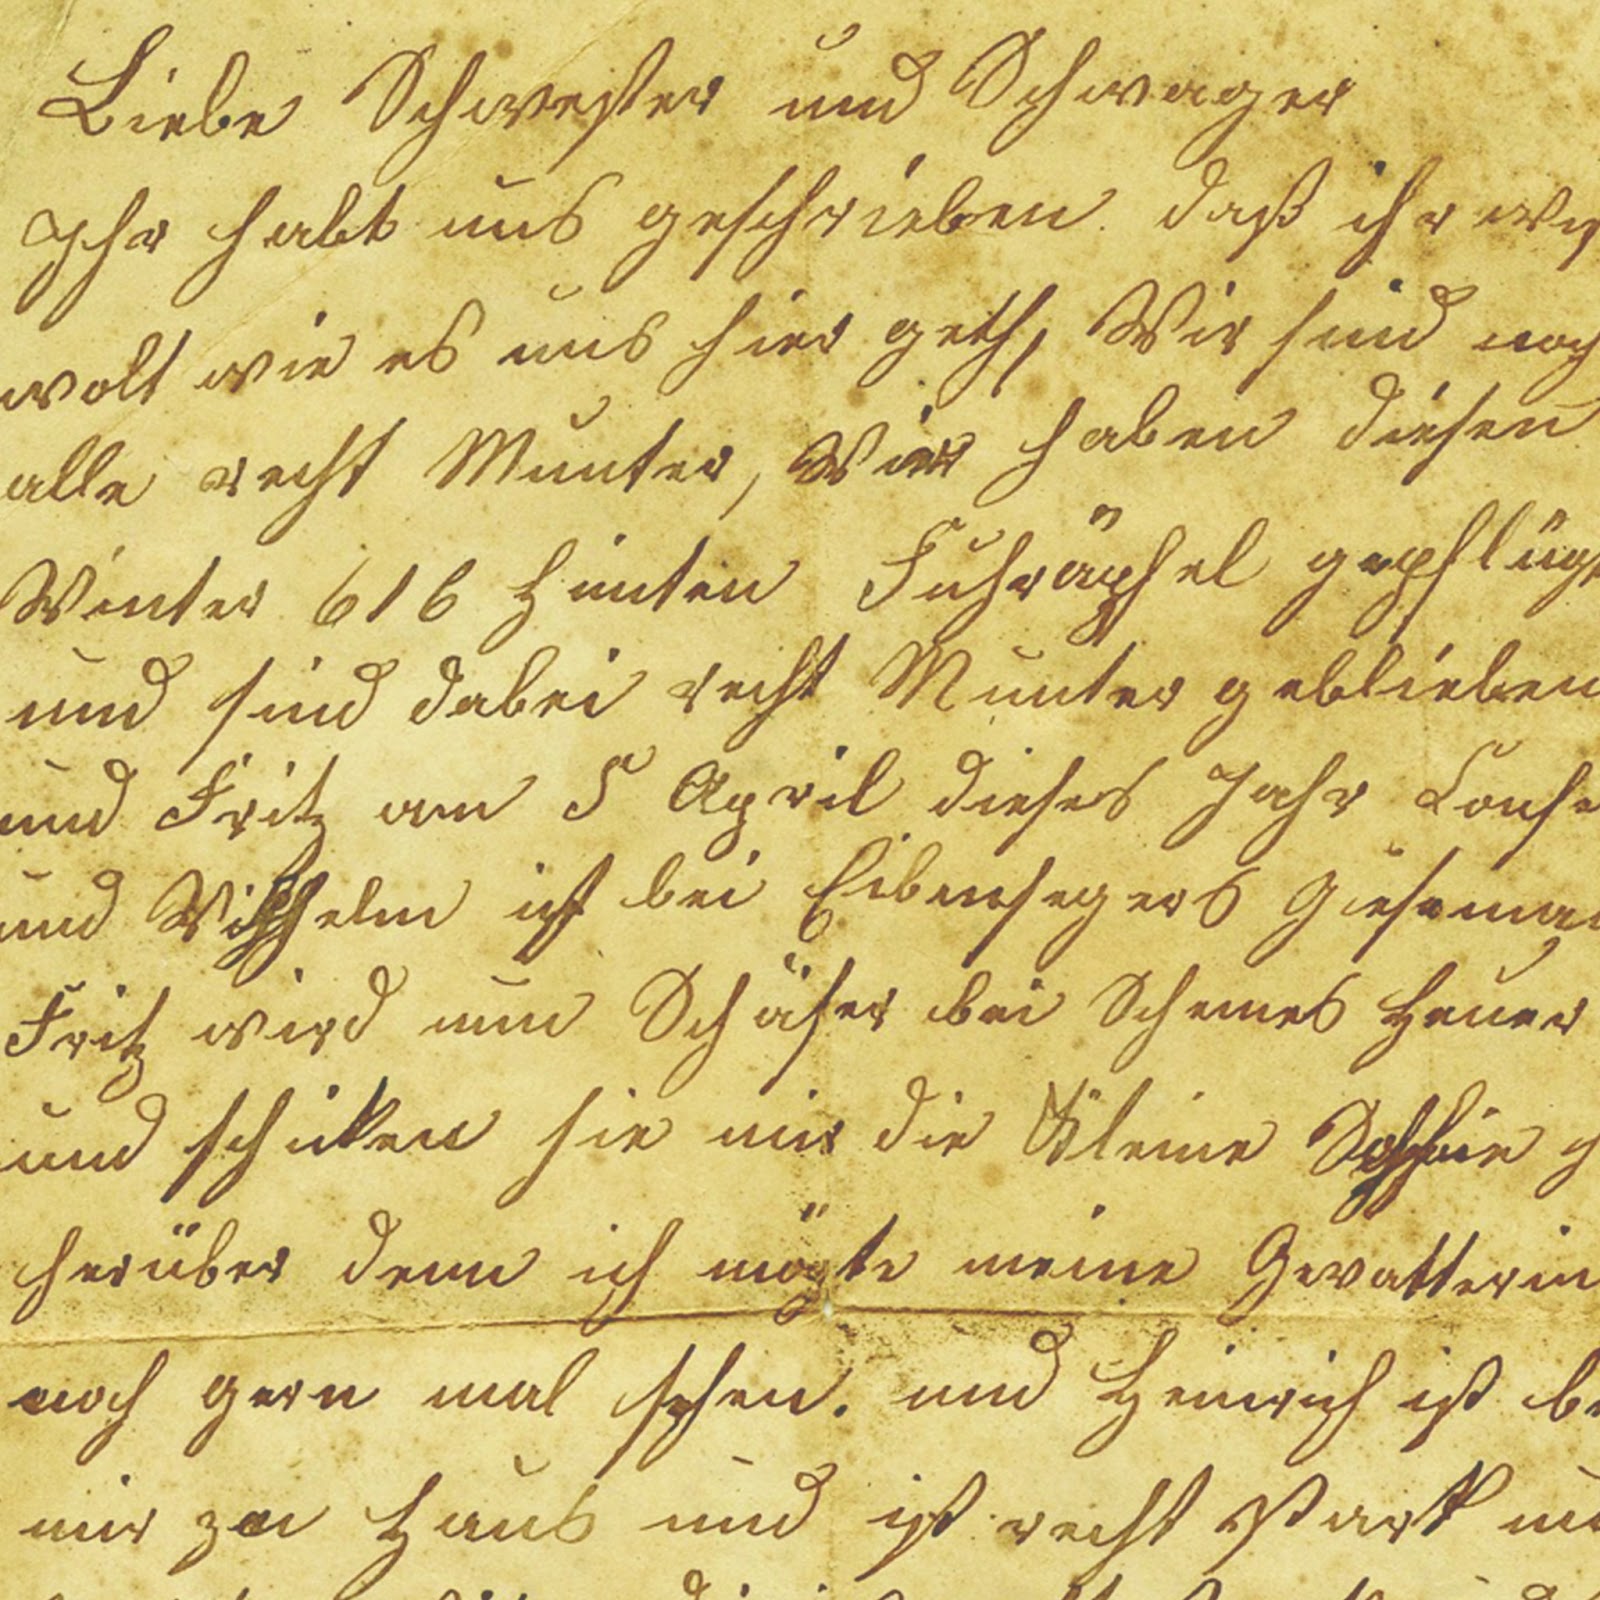 Liebe Schwester und Schwager
Ihr habt uns geschrieben daß ihr
wolt wie es uns hier geth, Wir sind noch
alle recht Munter, Wir haben diesen
Winter 616 Himten Fuhräpfel gepflügt
und sind dabei recht Munter geblieben
und Fritz am 5 April dieses Jahr
und Wilhelm ist bei
Fritz wird nun Schäfer bei Heuer
und schicken sie mir die Kleine Sophie
herüber denn ich mögte meine Gevatterin
noch gern mal sehen. und Heinrich ist
mir zu Haus und ist recht Stark